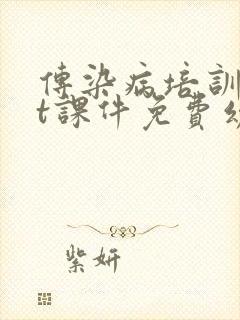 傳染病培訓
t課件免費
紫妍